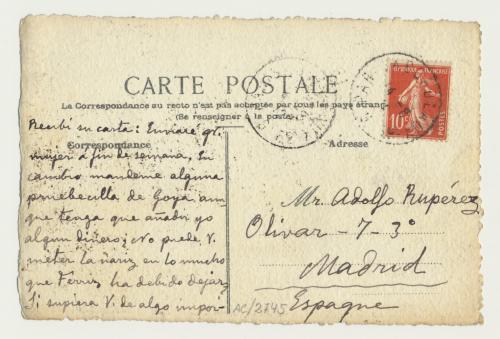 CARTE POSTALE
La Correspondance au recto n'est pas acceptée par tous les pays étrang
(Se renseigner à la poste)
Correspondance
Adresse
Recibí su carta: Enviaré gt.
mujer a fin de semana. En
cambio mandeme alguna
pruebecilla de Goya aun
que tenga que añadir yo
algun dinero; No puede V.
meter la nariz en lo mucho
que Ferriz ha debido dejar
Si supiera V. de algo impor-
Mr. Adolfo Rupérez
Olivar - 7 - 3º
Madrid
Espagne
AC/2745
REPUBLIQUE FRANÇAISE
10c
POSTES